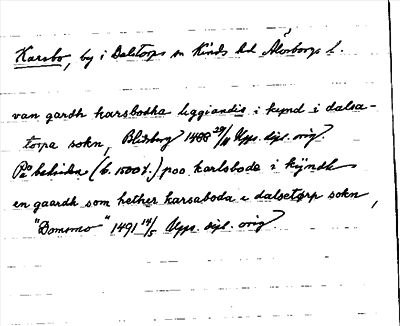 Karsbo, by i Dalstorps sn Kinds hd Älvsborgs l.
van gardh karsbodha liggiandis i kynd i dalsa-
torpa sokn, Blidsberg 1488 29/11 Upps. dipl. orig.
På baksidan (b. 1500 t.) poo karlsboda i kijndh
en gaardh som hether karsaboda i dalsetorp sokn,
"Dommo" 1491 14/5 Upps. dipl. orig.